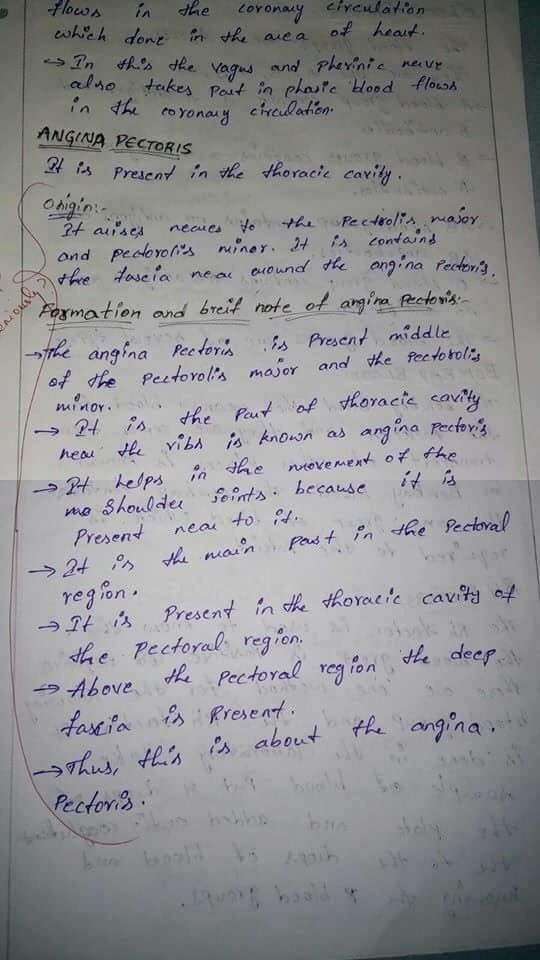 flows in the coronary circulation
which done in the area of heart.
→ In this the vagus and pherinic nerve
also takes part in phasic blood flows
in the coronary circulation.
ANGINA PECTORIS
It is present in the thoracic cavity.
Origin:-
It arises neares to the pectrolis major
and pectorolis minor. It is contains
the fascia near around the angina pectoris.
Formation and breif note of angina pectoris:-
→ The angina pectoris is present middle
of the pectorolis major and the pectorolis
minor.
→ It is the part of thoracic cavity
near the ribs is known as angina pectoris
→ It helps in the movement of the
mo shoulder joints. because it is
present near to it.
→ It is the main part in the pectoral
region.
→ It is present in the thoracic cavity of
the pectoral region.
→ Above the pectoral region the deep
fascia is present.
→ Thus, this is about the angina.
pectoris.